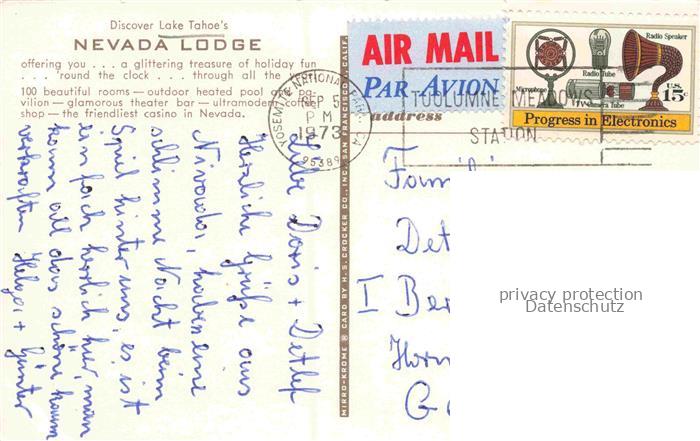 Discover Lake Tahoe's
NEVADA LODGE
offering you . . . a glittering treasure of holiday fun
. . . 'round the clock . . . through all the
100 beautiful rooms — outdoor heated pool
vilion — glamorous theater bar — ultramodern coffee
shop — the friendliest casino in Nevada.
Liebe Doris + Detlef
Herzliche Grüße aus
Nevada, haben eine
schlimme Nacht beim
Spiel hinter uns, es ist
einfach herrlich hier, man
kann all das schöne kaum
verkraften Helga + Günter
MIRRO-KROME ® CARD BY H. S. CROCKER CO., INC. SAN FRANCISCO, CALIF.
AIR MAIL
PAR AVION
address
YOSEMITE NATIONAL PARK, CA
SEP 5
PM
1973
95389
TUOLUMNE MEADOWS
STATION
Radio Speaker
Radio Tube
Microphone
Camera Tube
U.S.
15c
Progress in Electronics
Fam
Det
I Ber
Horn
privacy protection
Datenschutz